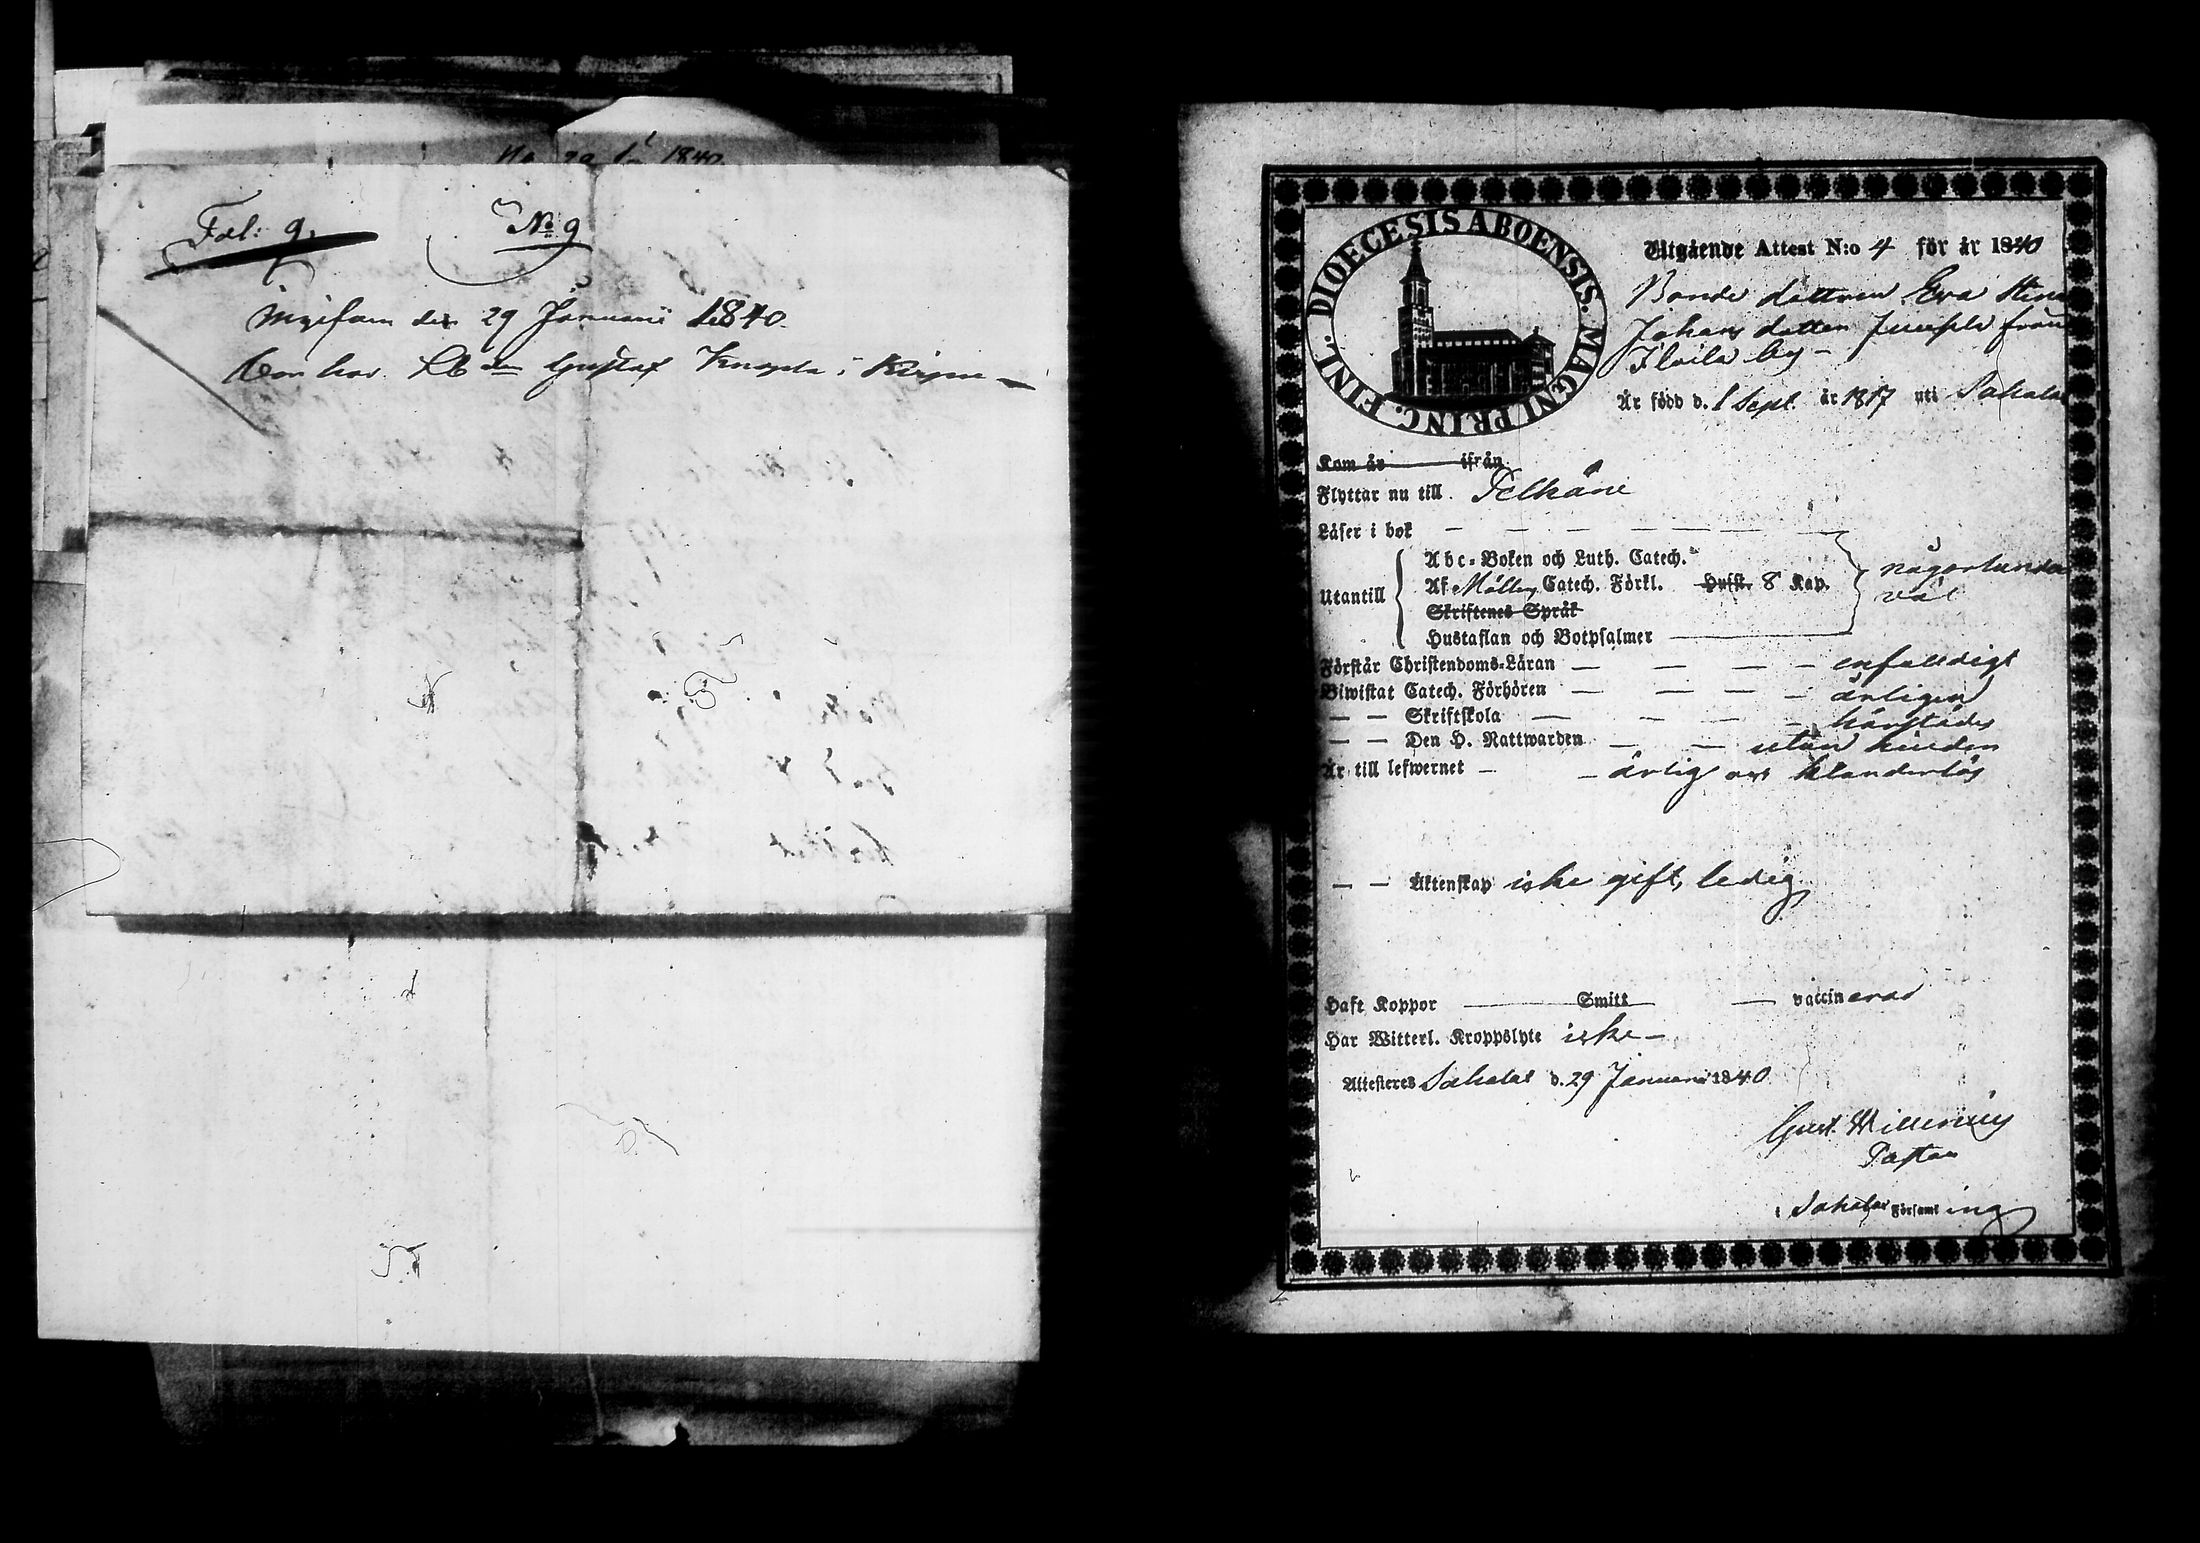 No 29 1840
Fol: 9. No 9
den 29 Januarii 1840.
Gustaf i
FINL. DIOECESIS ABOENSIS. MAGNI PRINC.
Utgående Attest N:o 4 för år 1840
Bonde dottren Eva Stina
Johans dotter från
by
Är född d. 1 Sept. år 1817 uti Sahalax
Kom år ifrån
Flyttar nu till Pelkäne
Läser i bok
Abc-Boken och Luth. Catech.
Utantill Af Möllers Catech. Förkl. Hufst. 8 Kap. någorlunda
Skriftenes Språk väl
Hustaflan och Botpsalmer
Förstår Christendoms-Läran enfaldigt
Biwistat Catech. Förhören årligen
Skriftskola härstädes
Den H. Nattwarden utan hinder
Är till lefwernet ärlig och klanderlös
Äktenskap icke gift, ledig
Haft Koppor Smitt vaccinerad
Har Witterl. Kroppslyte icke
Attesteres Sahalax d. 29 Januarii 1840
Gust.
Pastor
i Sahalax Församling